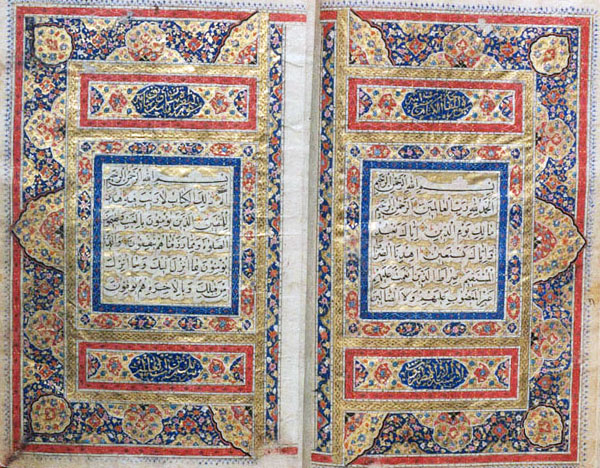 بسم الله الرحمن الرحيم
الحمد لله رب العالمين الرحمن الرحيم
مالك يوم الدين اياك نعبد
واياك نستعين اهدنا الصراط
المستقيم صراط الذين انعمت عليهم
غير المغضوب عليهم ولا الضالين
بسم الله الرحمن الرحيم
الم ذلك الكتاب لا ريب فيه هدى
للمتقين الذين يؤمنون بالغيب ويقيمون
الصلوة ومما رزقناهم ينفقون والذين
يؤمنون بما انزل اليك وما انزل
من قبلك وبالاخرة هم يوقنون